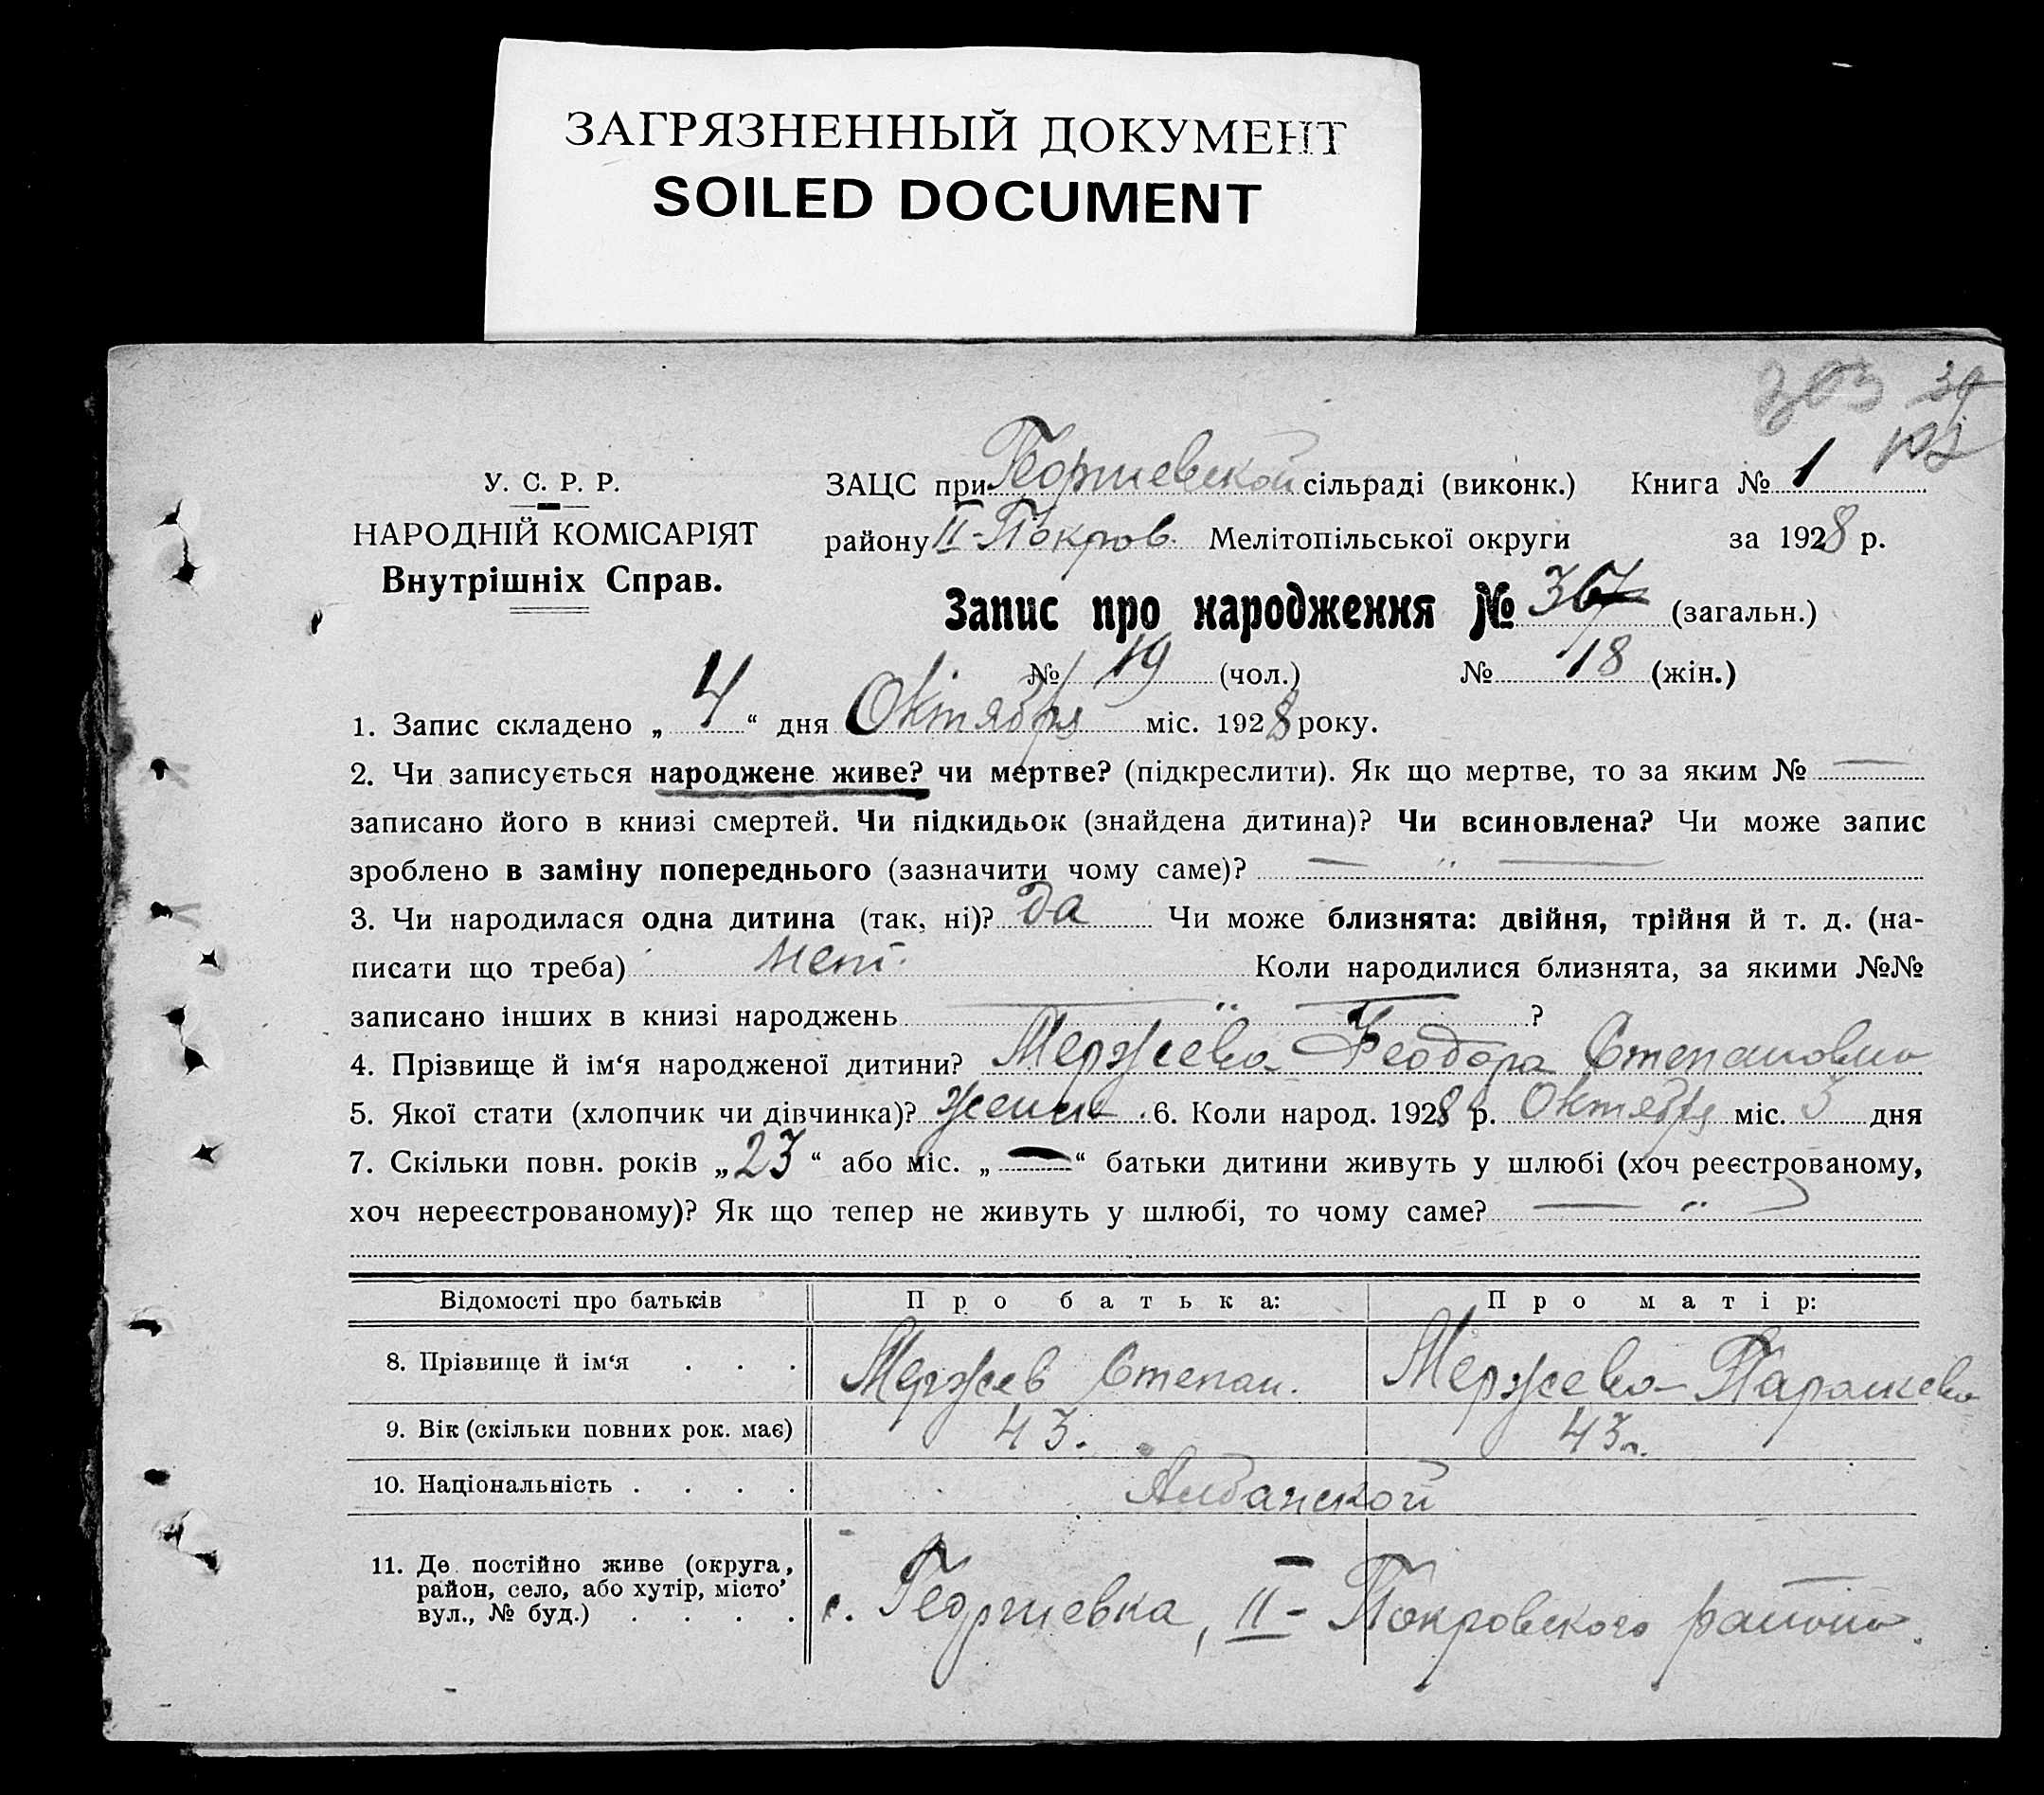 ЗАГРЯЗНЕННЫЙ ДОКУМЕНТ
SOILED DOCUMENT
303 39
У. С. Р. Р.
НАРОДНІЙ КОМІСАРІЯТ
Внутрішніх Справ.
ЗАЦС при Георгиевской сільраді (виконк.) Книга № 1
району II-Покров. Мелітопільської округи за 1928 р.
Запис про народження № (загальн.)
№ 19 (чол.) № 18 (жін.)
1. Запис складено „ 4 “ дня Октября міс. 1928 року.
2. Чи записується народжене живе? чи мертве? (підкреслити). Як що мертве, то за яким № —
записано його в книзі смертей. Чи підкидьок (знайдена дитина)? Чи всиновлена? Чи може запис
зроблено в заміну попереднього (зазначити чому саме)? — „ —
3. Чи народилася одна дитина (так, ні)? да Чи може близнята: двійня, трійня й т. д. (на-
писати що треба) нет. Коли народилися близнята, за якими №№
записано інших в книзі народжень — „ — ?
4. Прізвище й ім‘я народженої дитини? Мержева Феодора Степановна
5. Якої стати (хлопчик чи дівчинка)? женск. 6. Коли народ. 1928 р. Октября міс. 3 дня
7. Скільки повн. років „23“ або міс. „—“ батьки дитини живуть у шлюбі (хоч реєстрованому,
хоч нереєстрованому)? Як що тепер не живуть у шлюбі, то чому саме? — „ —
Відомості про батьків Про батька: Про матір:
8. Прізвище й ім‘я . . . Мержев Степан. Мержева Парашкева
9. Вік (скільки повних рок. має) 43. 43 г.
10. Національність . . . . Албанской
11. Де постійно живе (округа,
район, село, або хутір, місто’
вул., № буд.) . . . . с. Георгиевка, II-Покровского района.